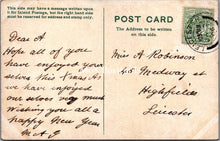 This side may have a message written upon
it for Inland Postage, but the right hand side
must be reserved for address and stamp only.
POST CARD
The Address to be written
on this side.
Dear A
Hope all of you
have enjoyed your
selves this Xmas as we
have enjoyed
our selves very much
Wishing you all a
happy New Year
Miss A Robinson
45 Medway St
Highfields
Leicester